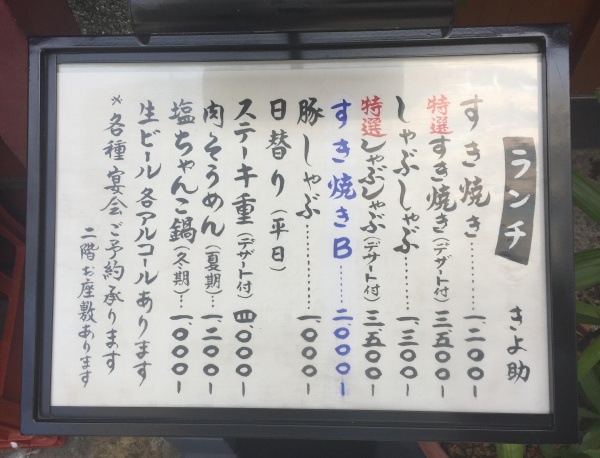 ランチ きよ助
すき焼き………一、二〇〇ー
特選すき焼き(デザート付)三、五〇〇ー
しゃぶしゃぶ………一、三〇〇ー
特選しゃぶしゃぶ(デザート付)三、五〇〇ー
すき焼きB………二、〇〇〇ー
豚しゃぶ………一、〇〇〇ー
日替り(平日)
ステーキ重(デザート付)四、〇〇〇ー
肉そうめん(夏期)…一、二〇〇ー
塩ちゃんこ鍋(冬期)…一、〇〇〇ー
生ビール 各アルコールあります
※各種宴会ご予約承ります
二階お座敷あります